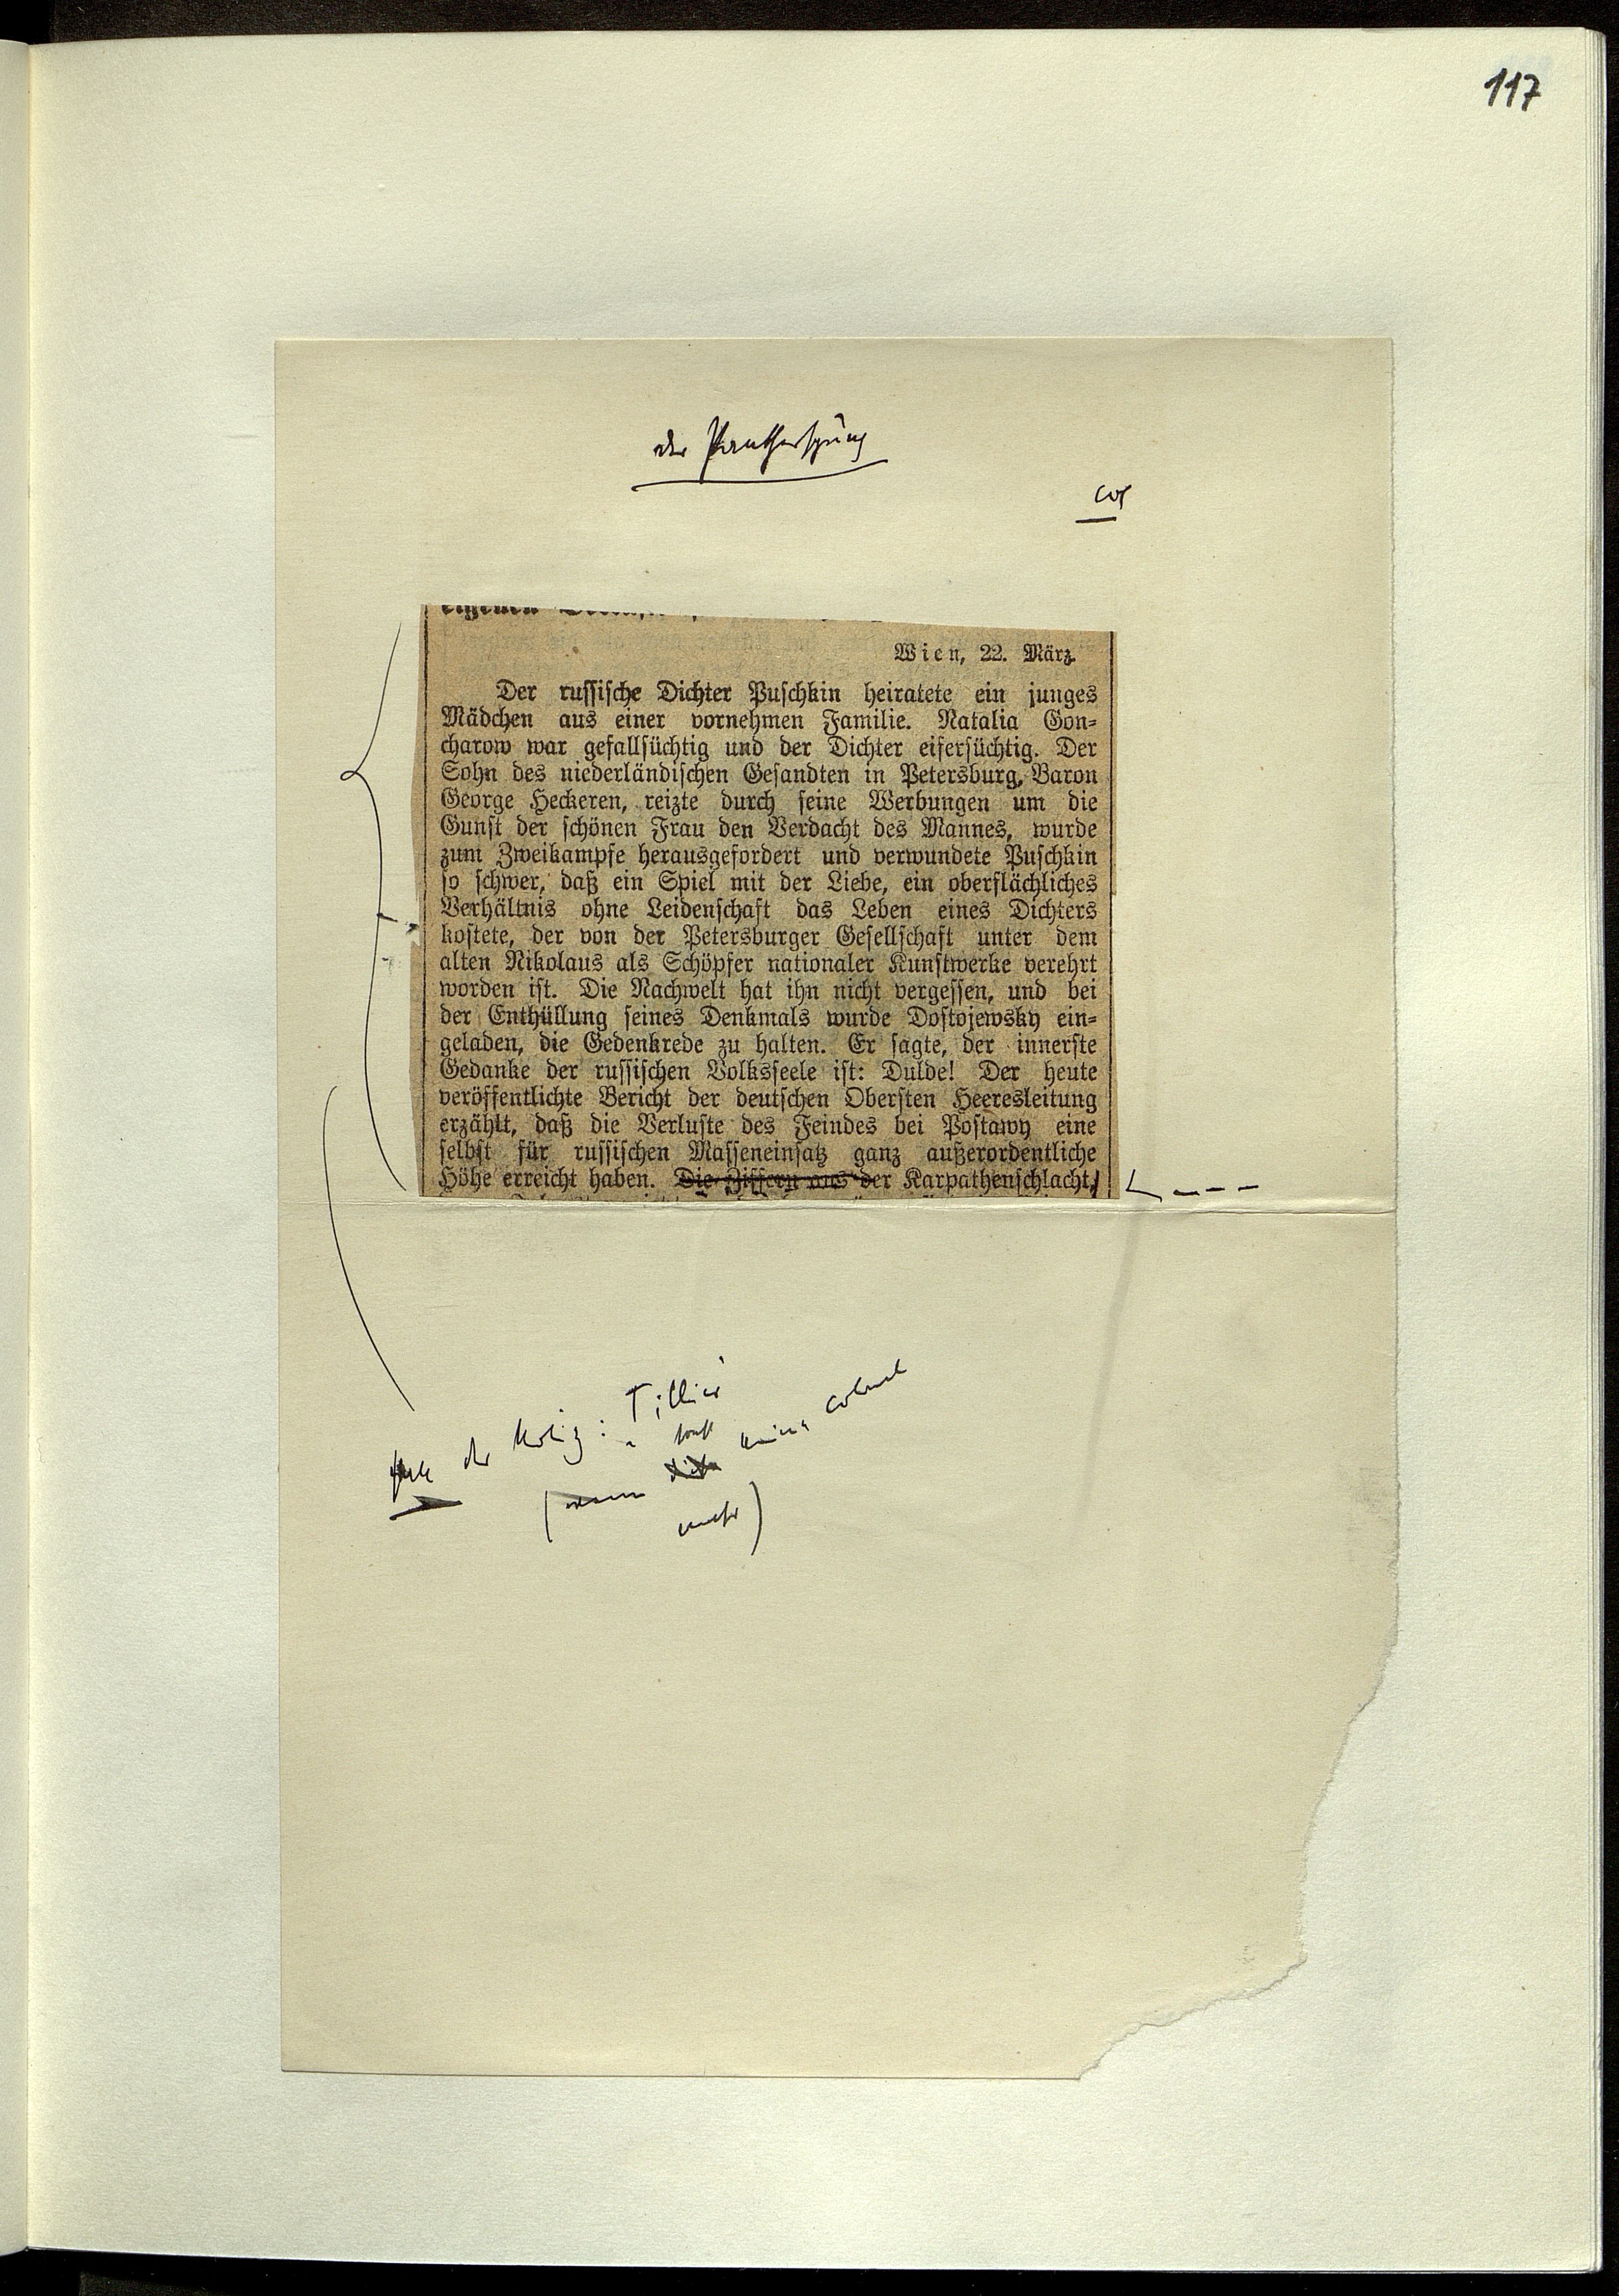 117
der Panthersprung
eigenen
Wien, 22. März.
Der russische Dichter Puschkin heiratete ein junges
Mädchen aus einer vornehmen Familie. Natalia Gon-
charow war gefallsüchtig und der Dichter eifersüchtig. Der
Sohn des niederländischen Gesandten in Petersburg, Baron
George Heckeren, reizte durch seine Werbungen um die
Gunst der schönen Frau den Verdacht des Mannes, wurde
zum Zweikampfe herausgefordert und verwundete Puschkin
so schwer, daß ein Spiel mit der Liebe, ein oberflächliches
Verhältnis ohne Leidenschaft das Leben eines Dichters
kostete, der von der Petersburger Gesellschaft unter dem
alten Nikolaus als Schöpfer nationaler Kunstwerke verehrt
worden ist. Die Nachwelt hat ihn nicht vergessen, und bei
der Enthüllung seines Denkmals wurde Dostojewsky ein-
geladen, die Gedenkrede zu halten. Er sagte, der innerste
Gedanke der russischen Volksseele ist: Dulde! Der heute
veröffentlichte Bericht der deutschen Obersten Heeresleitung
erzählt, daß die Verluste des Feindes bei Postawy eine
selbst für russischen Masseneinsatz ganz außerordentliche
Höhe erreicht haben. Die Ziffern aus der Karpathenschlacht,
der Notiz: Tillier